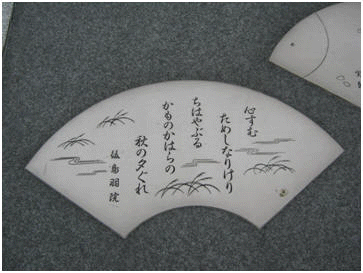 心すむ
ためしなりけり
ちはやぶる
かものかはらの
秋の夕ぐれ
後鳥羽院